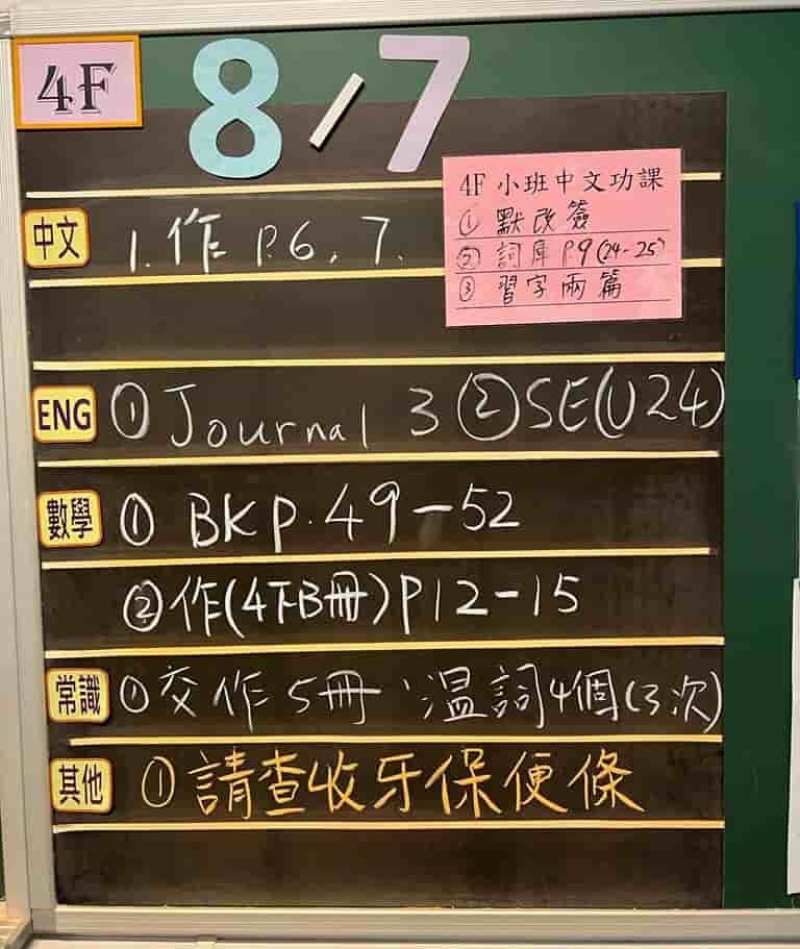 4F
8/7
中文 1. 作 P.6, 7.
4F 小班中文功課
① 默改簽
② 詞庫 P9(24-25)
③ 習字兩篇
ENG ① Journal 3 ② SE(U24)
數學 ① BK P.49-52
② 作(4下B冊) P12-15
常識 ① 交作5冊、温詞4個(3次)
其他 ① 請查收牙保便條